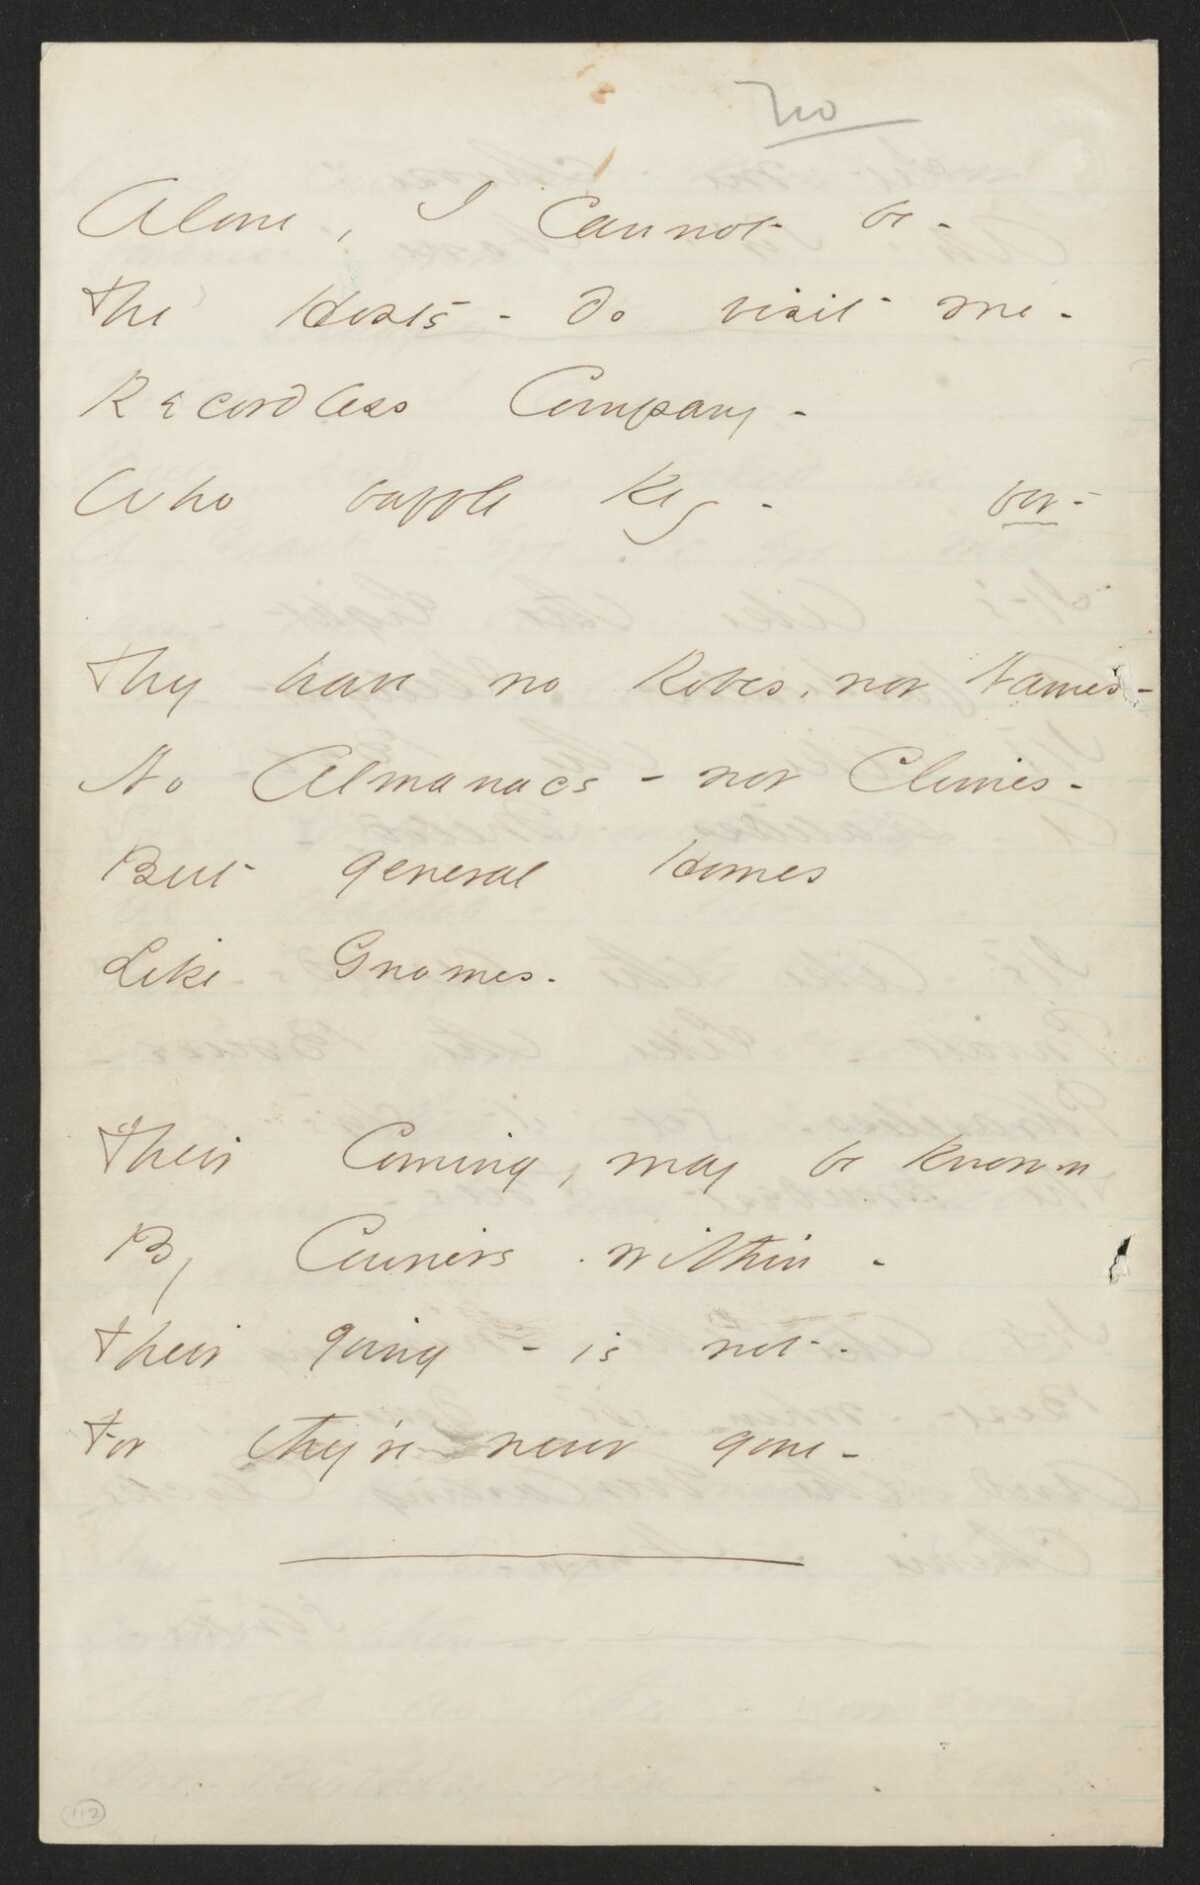 no
Alone, I cannot be -
The Hosts - do visit me -
Recordless Company -
Who baffle Key - for -
They have no Robes, nor Names -
No Almanacs - nor Climes -
But general Homes
Like Gnomes -
Their Coming, may be known
By Couriers within -
Their going - is not -
For they're never gone -
112